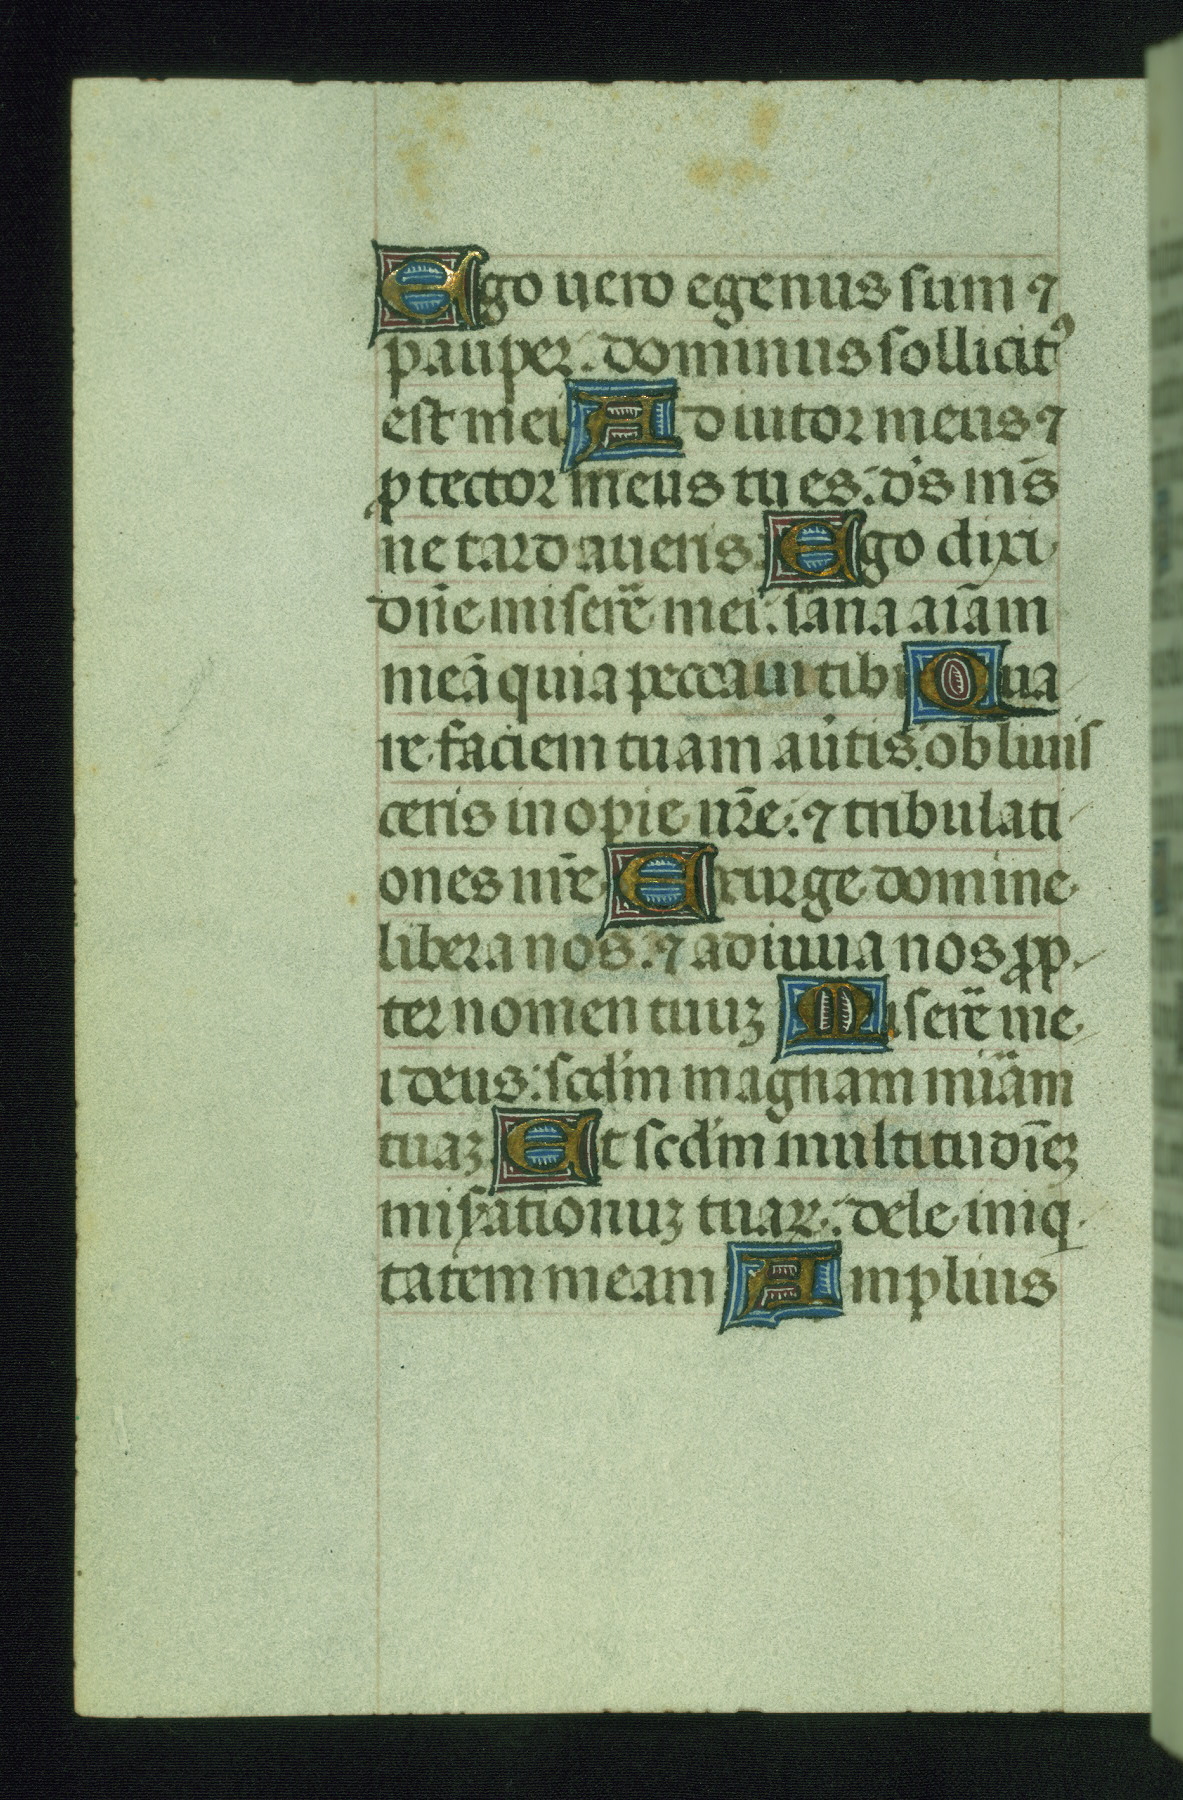 Ego uero egenus sum ⁊
pauper: dominus sollicitꝰ
est mei Adiutor meus ⁊
ꝓtector meus tu es: ds̄ ms̄
ne tardaueris. Ego dixi
dn̄e miserē mei: sana aīam
meā quia peccaui tibi Qua
re faciem tuam aūtis: obliuis
ceris inopie nr̄e: ⁊ tribulati
ones nr̄e Exurge domine
libera nos: ⁊ adiuua nos ꝓp
ter nomen tuuꝫ Miserē me
i deus: scd'm magnam miām
tuaꝫ Et scd'm multitudīeꝫ
miẜationuꝫ tuaꝝ: dele iniq
tatem meam Amplius